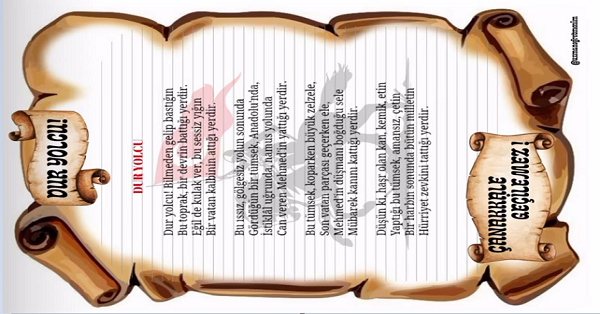 DUR YOLCU!
DUR YOLCU
Dur yolcu! Bilmeden gelip bastığın
Bu toprak, bir devrin battığı yerdir.
Eğil de kulak ver, bu sessiz yığın
Bir vatan kalbinin attığı yerdir.
Bu ıssız, gölgesiz yolun sonunda
Gördüğün bir tümsek, Anadolu'nda,
İstiklal uğrunda, namus yolunda
Can veren Mehmed'in yattığı yerdir.
Bu tümsek, koparken büyük zelzele,
Son vatan parçası geçerken ele,
Mehmed'in düşmanı boğduğu sele
Mübarek kanını kattığı yerdir.
Düşün ki, haşr olan kan, kemik, etin
Yaptığı bu tümsek, amansız, çetin
Bir harbin sonunda bütün milletin
Hürriyet zevkini tattığı yerdir.
ÇANAKKALE
GEÇİLEMEZ!